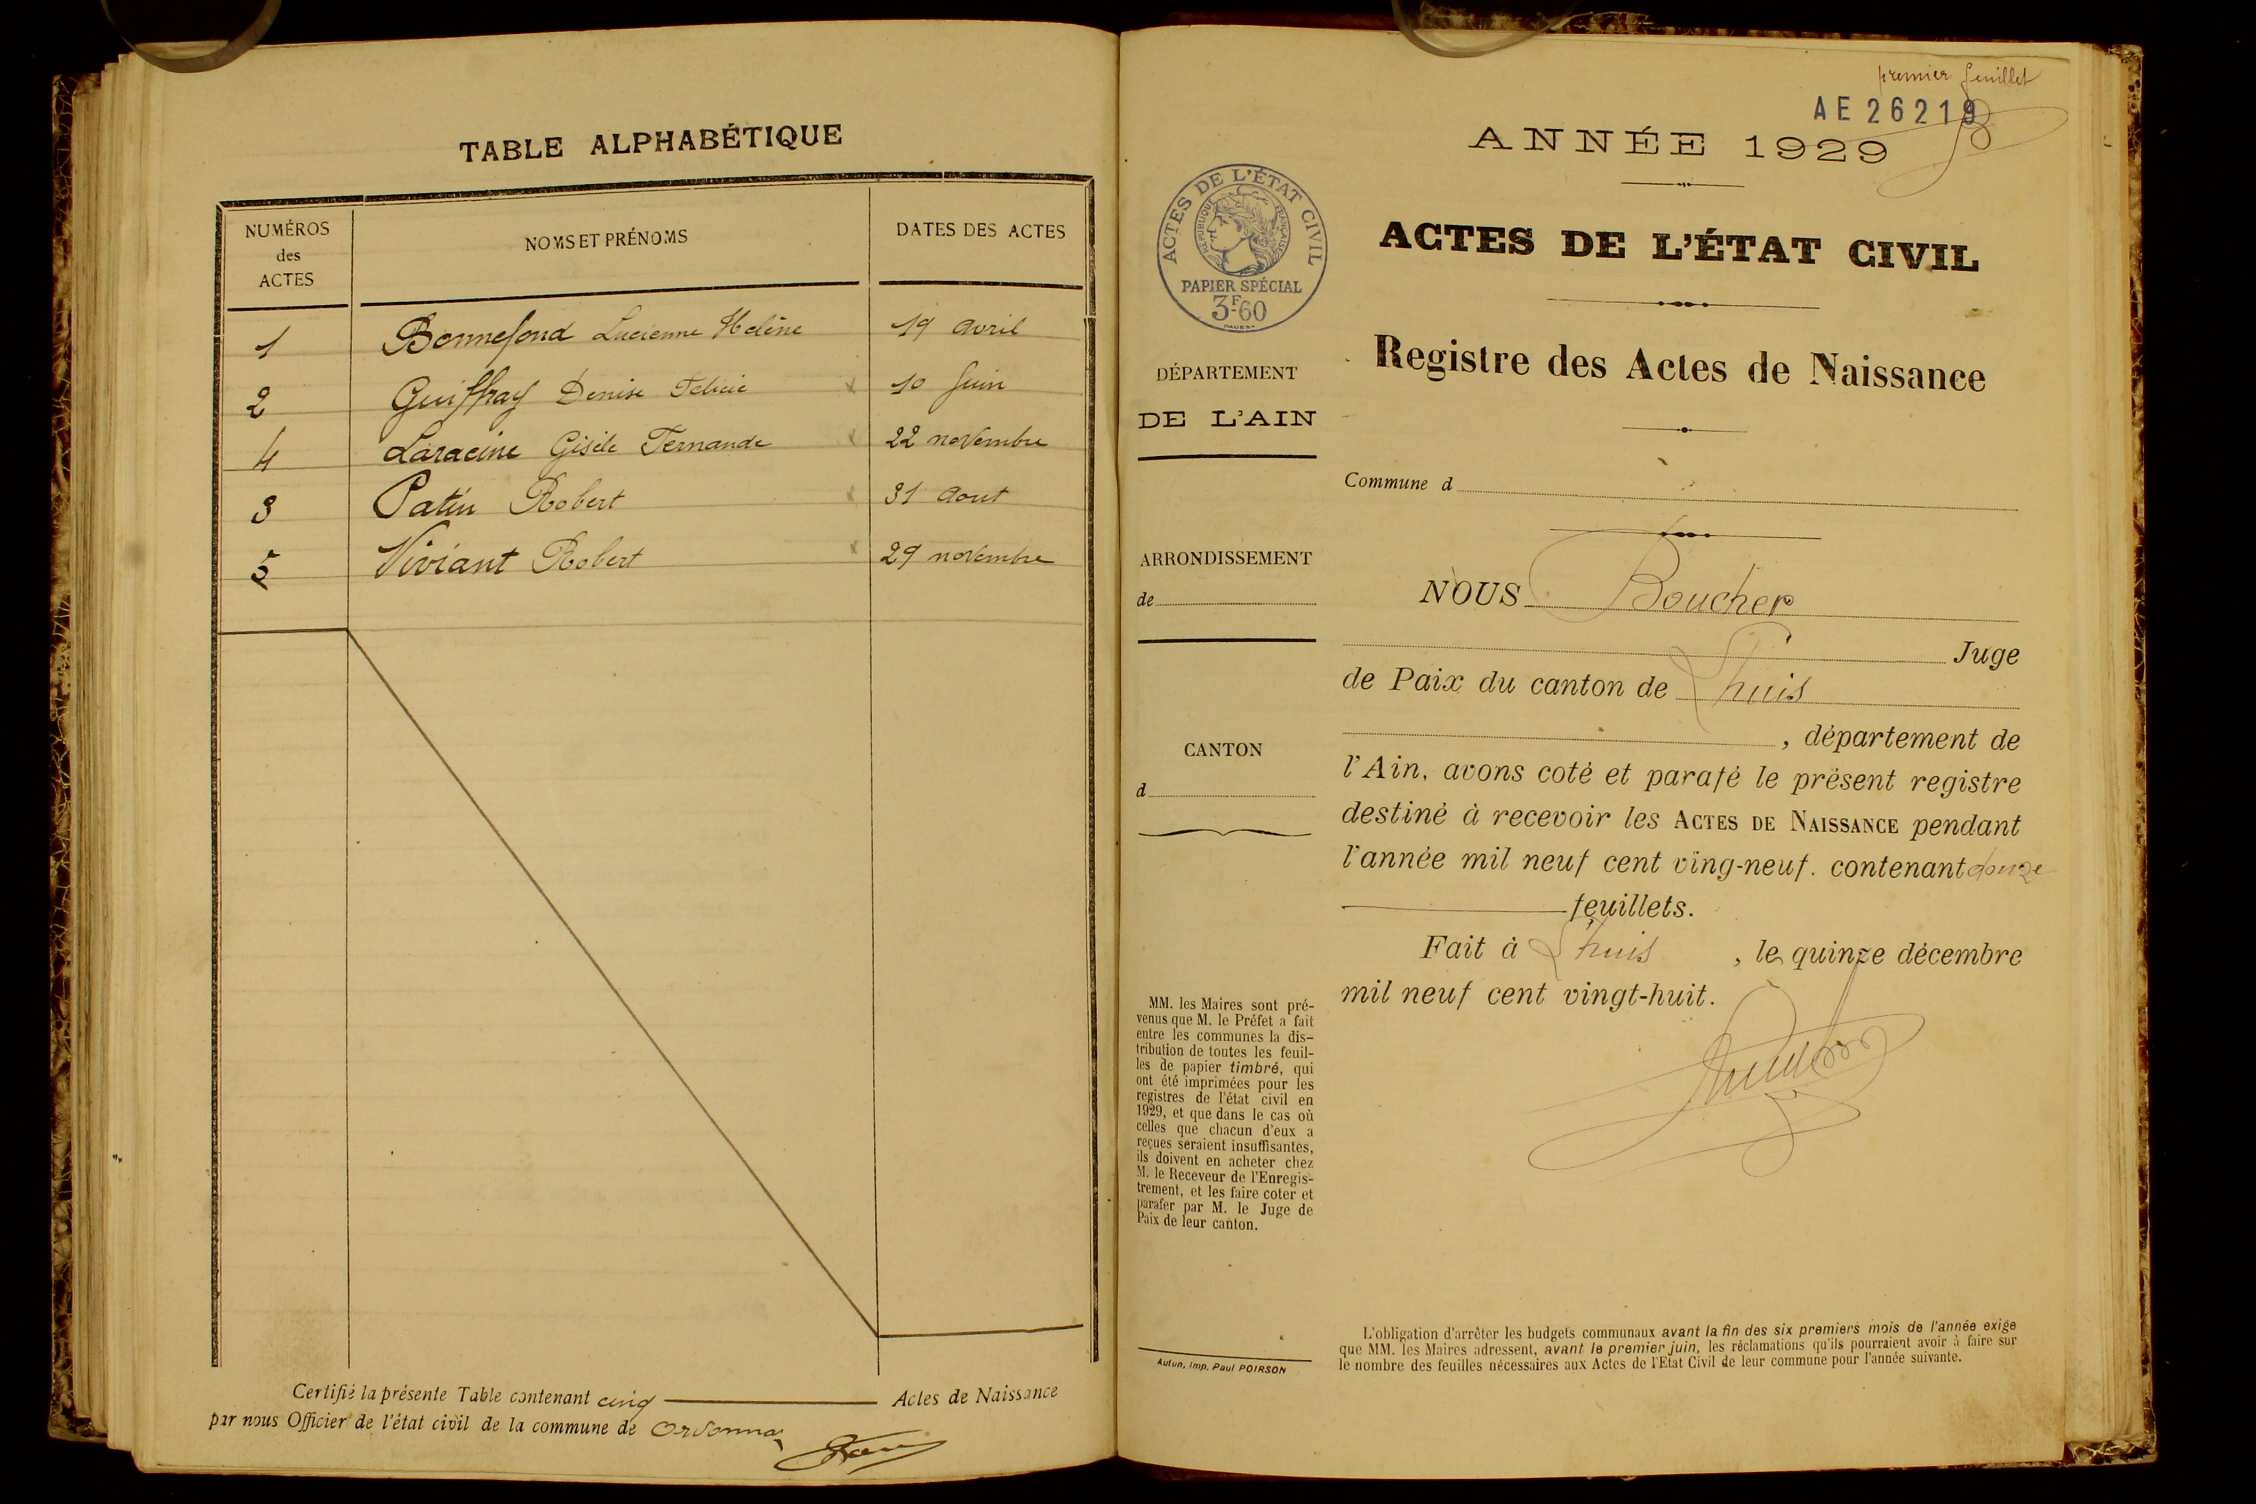 TABLE ALPHABÉTIQUE
NUMÉROS des ACTES NOMS ET PRÉNOMS DATES DES ACTES
1 Bonnefond Lucienne Helène 19 avril
2 Guiffray Denise Felicie 10 Juin
4 Laracine Gisèle Fernande 22 novembre
3 Patin Robert 31 Aout
5 Viviant Robert 29 novembre
Certifié la présente Table contenant cinq Actes de Naissance
par nous Officier de l'état civil de la commune de Ordonnaz
premier feuillet
AE 26219
ANNÉE 1929
ACTES DE L'ÉTAT CIVIL
RÉPUBLIQUE FRANÇAISE
PAPIER SPÉCIAL
3F60
ACTES DE L'ÉTAT CIVIL
Registre des Actes de Naissance
DÉPARTEMENT
DE L'AIN
Commune d
ARRONDISSEMENT
de
CANTON
d
NOUS Boucher
Juge
de Paix du canton de Lhuis
, département de
l'Ain, avons coté et parafé le présent registre
destiné à recevoir les ACTES DE NAISSANCE pendant
l'année mil neuf cent ving-neuf. contenant douze
feuillets.
Fait à Lhuis , le quinze décembre
mil neuf cent vingt-huit.
MM. les Maires sont pré-
venus que M. le Préfet a fait
entre les communes la dis-
tribution de toutes les feuil-
les de papier timbré, qui
ont été imprimées pour les
registres de l'état civil en
1929, et que dans le cas où
celles que chacun d'eux a
reçues seraient insuffisantes,
ils doivent en acheter chez
M. le Receveur de l'Enregis-
trement, et les faire coter et
parafer par M. le Juge de
Paix de leur canton.
Autun, Imp. Paul POIRSON
L'obligation d'arrêter les budgets communaux avant la fin des six premiers mois de l'année exige
que MM. les Maires adressent, avant le premier juin, les réclamations qu'ils pourraient avoir à faire sur
le nombre des feuilles nécessaires aux Actes de l'Etat Civil de leur commune pour l'année suivante.